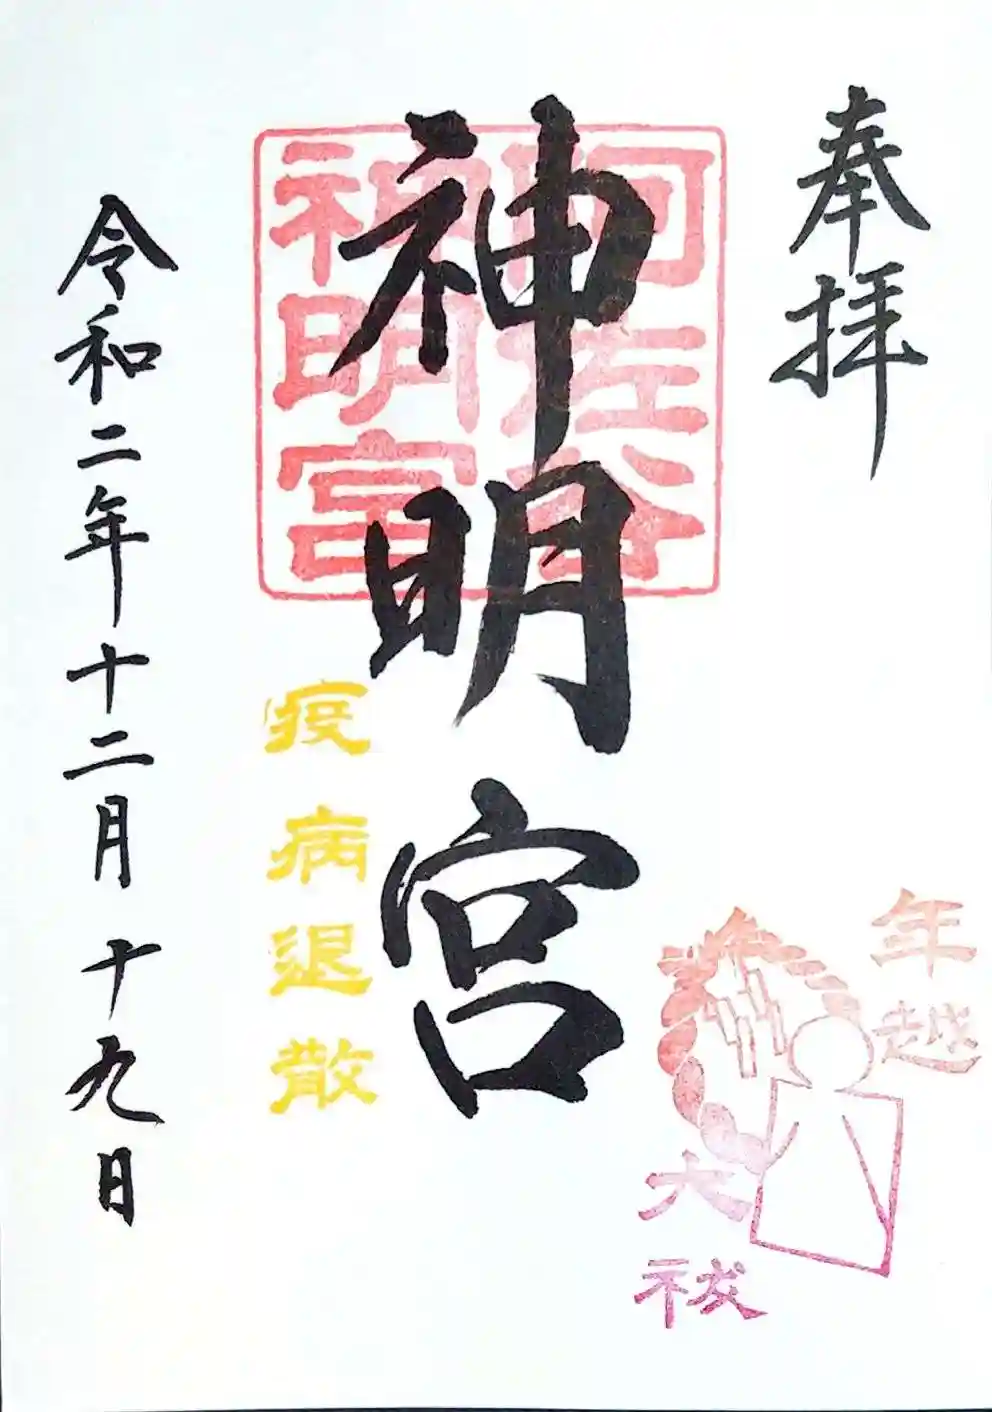 奉拝
阿佐谷
神明宮
神明宮
年越
大祓
疫病退散
令和二年十二月十九日